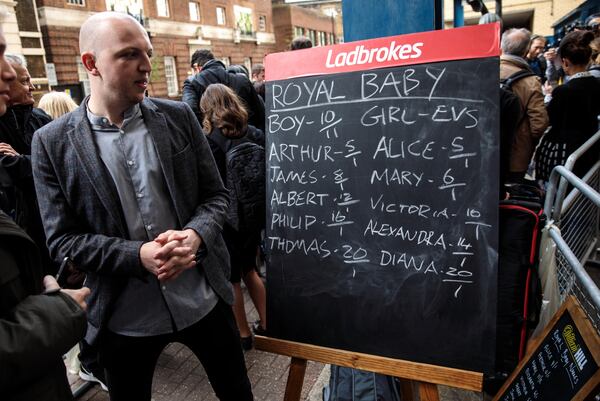 Ladbrokes
ROYAL BABY
BOY - 10/1 GIRL - EVS
ARTHUR - 5/1 ALICE - 5/1
JAMES - 8/1 MARY - 6/1
ALBERT - 12/1 VICTORIA - 10/1
PHILIP - 16/1 ALEXANDRA - 14/1
THOMAS - 20/1 DIANA - 20/1
William HILL